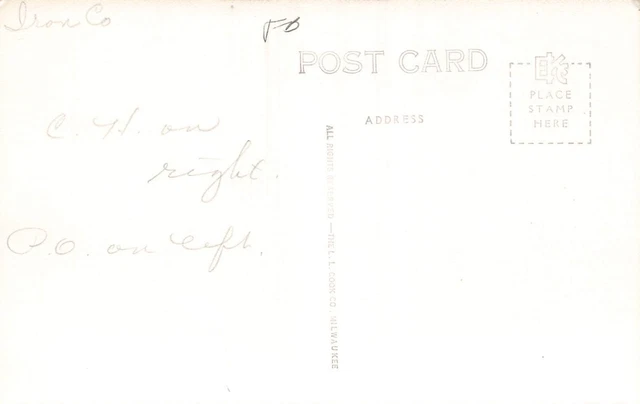 Iron Co
POST CARD
EKC
PLACE
STAMP
HERE
ADDRESS
C. H. on
right.
P.O. on left.
ALL RIGHTS RESERVED — THE L. L. COOK CO., MILWAUKEE